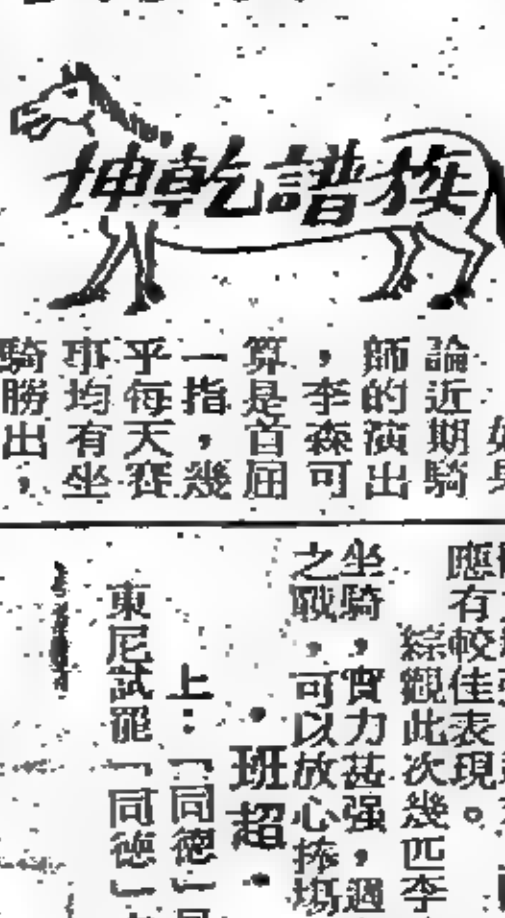 族譜乾坤
論近期騎
師的演出
，李森可
算是首屈
一指，幾
乎每天賽
事均有坐
騎勝出，
應有較佳表現。
綜觀此次幾匹李
坐騎，實力甚强，週
之戰，可以放心捧場
·班超·
上：「同德」
東尼試罷「同德」